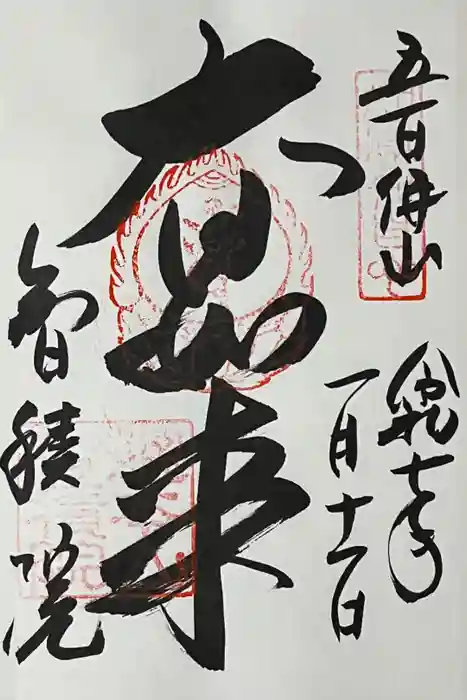 五百佛山
令和七年
一月十一日
大日如来
智積院